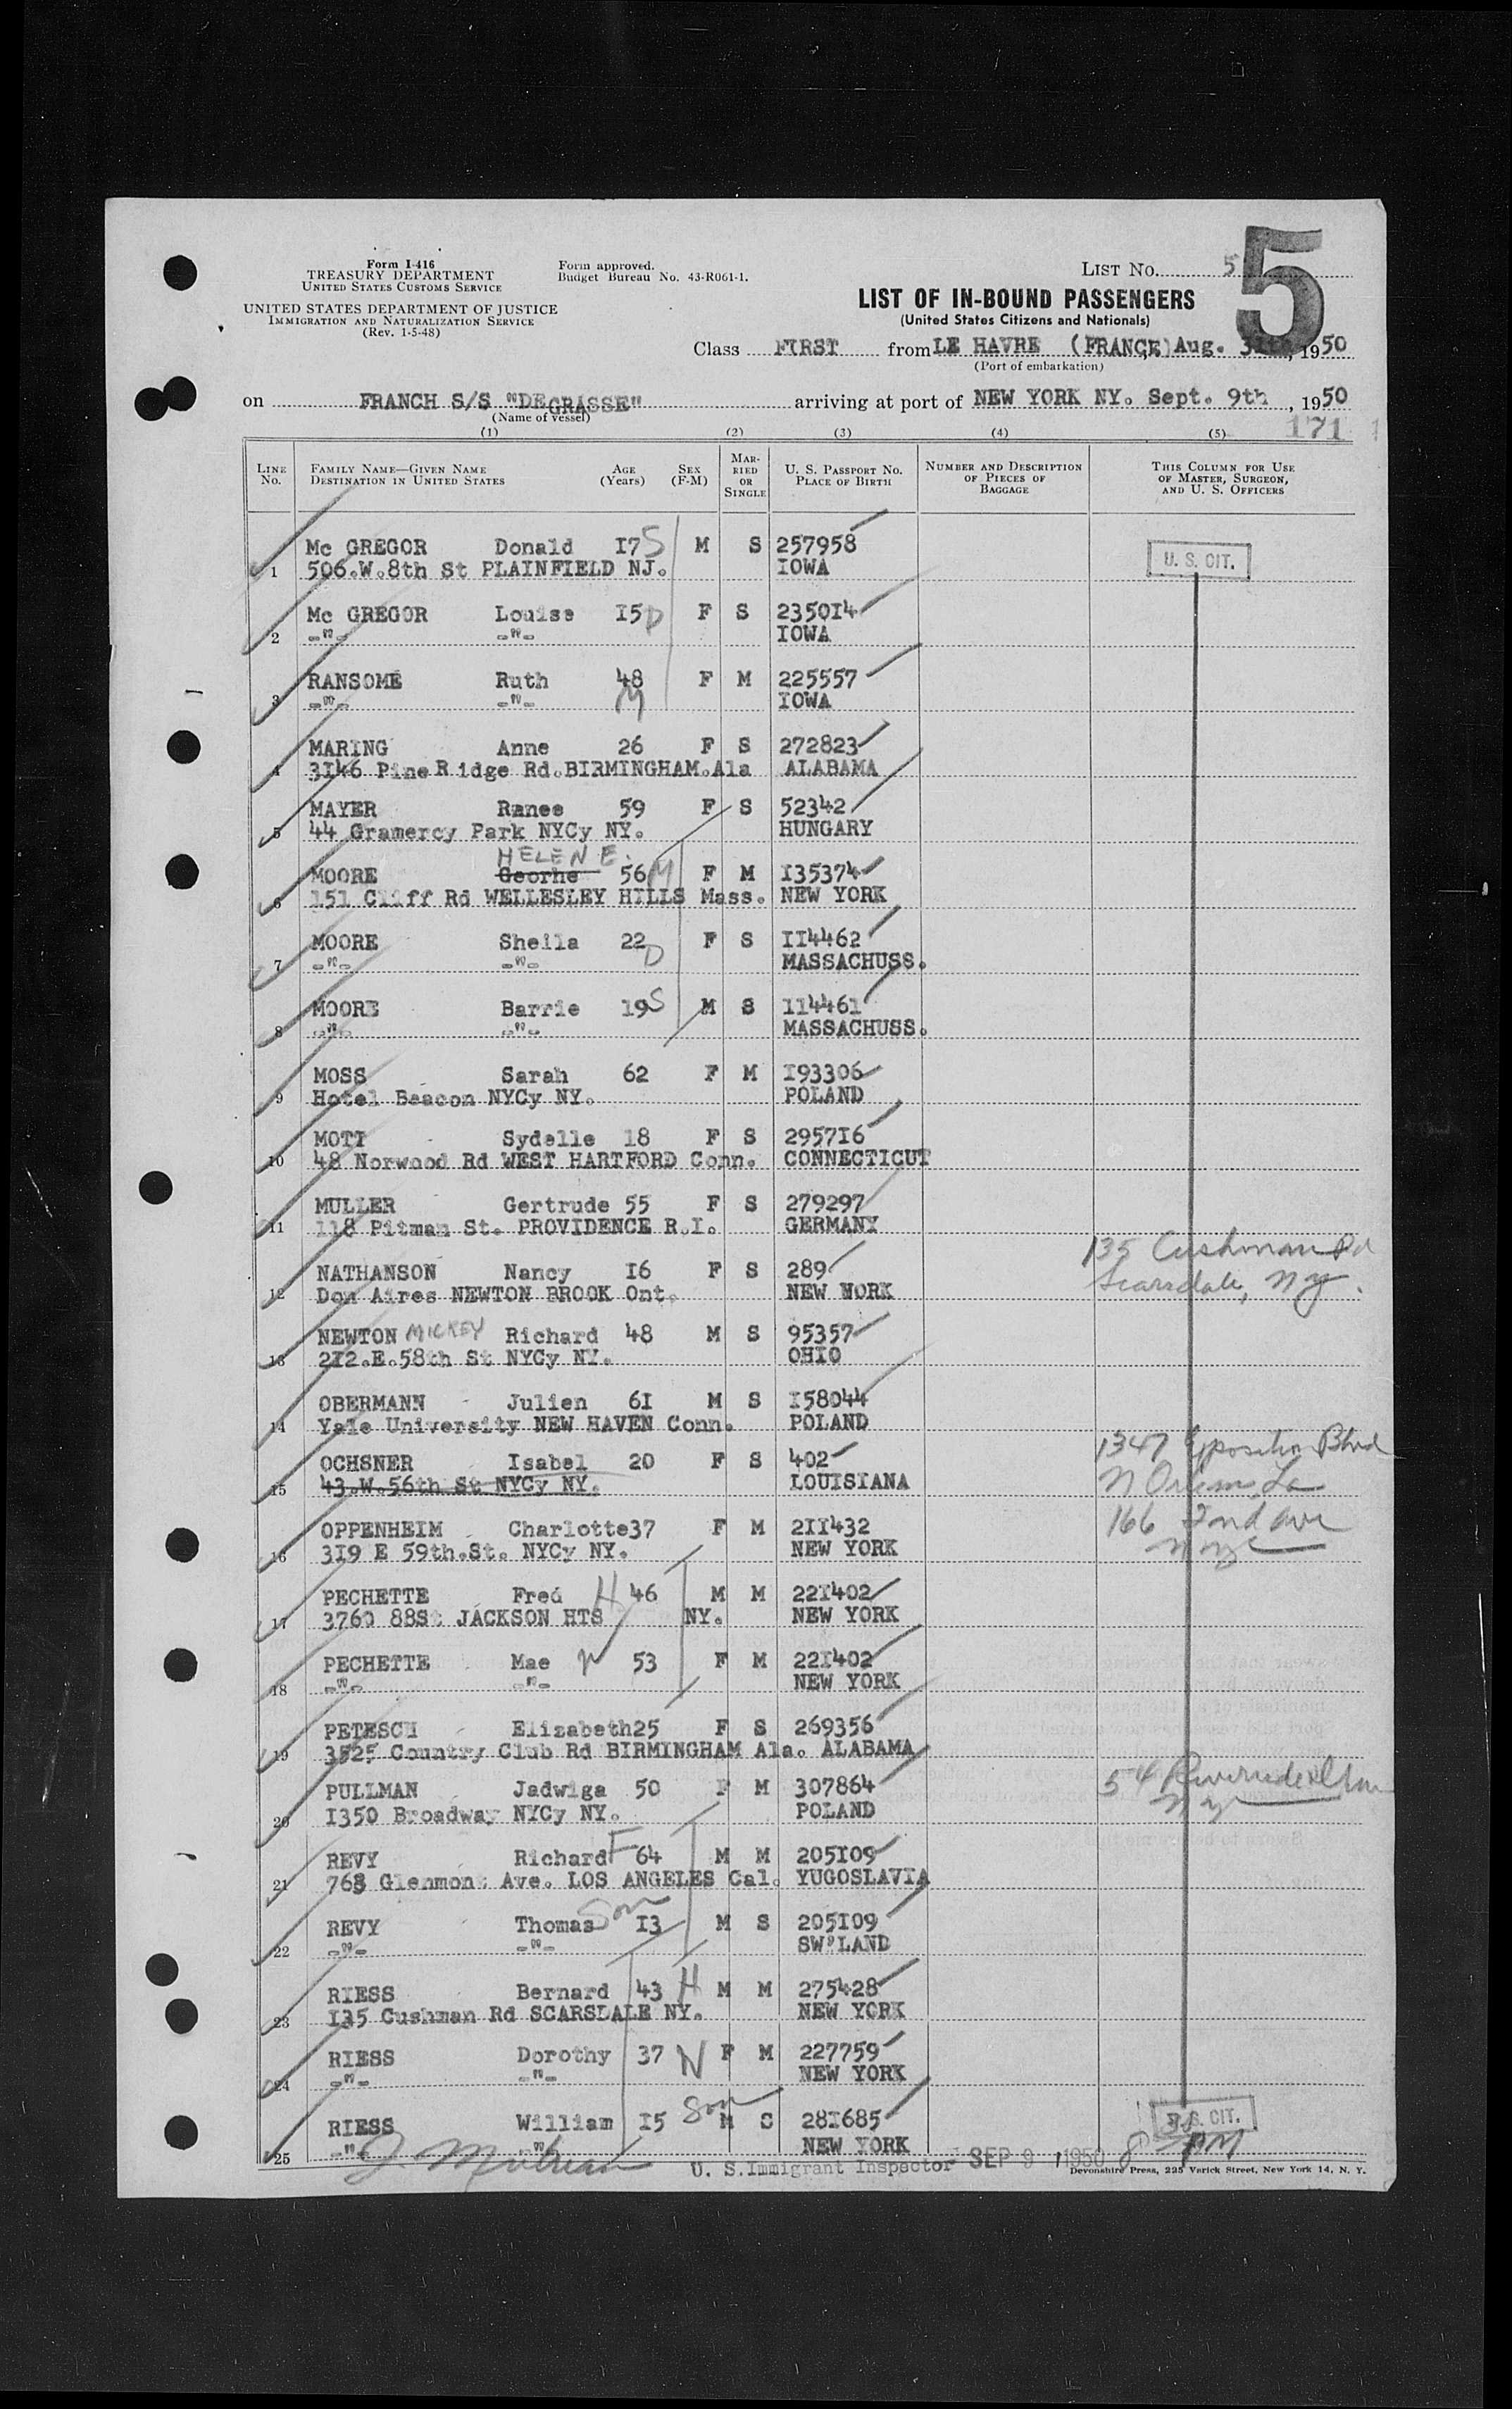 Form I-416
TREASURY DEPARTMENT
UNITED STATES CUSTOMS SERVICE
UNITED STATES DEPARTMENT OF JUSTICE
IMMIGRATION AND NATURALIZATION SERVICE
(Rev. 1-5-48)
Form approved.
Budget Bureau No. 43-R061-1.
LIST NO. 5
5
LIST OF IN-BOUND PASSENGERS
(United States Citizens and Nationals)
Class FIRST from LE HAVRE (FRANCE) Aug. , 1950
(Port of embarkation)
on FRANCH S/S "DEGRASSE" arriving at port of NEW YORK NY. Sept. 9th , 1950
(Name of vessel)
171
(1) (2) (3) (4) (5)
LINE No. FAMILY NAME—GIVEN NAME DESTINATION IN UNITED STATES AGE (Years) SEX (F-M) MARRIED OR SINGLE U. S. PASSPORT NO. PLACE OF BIRTH NUMBER AND DESCRIPTION OF PIECES OF BAGGAGE THIS COLUMN FOR USE OF MASTER, SURGEON, AND U. S. OFFICERS
Mc GREGOR Donald I7 S M S 257958 U. S. CIT.
1 506.W.8th St PLAINFIELD NJ. IOWA
Mc GREGOR Louise I5 D F S 2350I4
2 -"- -"- IOWA
RANSOME Ruth 48 M F M 225557
3 -"- -"- IOWA
MARING Anne 26 F S 272823
4 3I46 Pine Ridge Rd.BIRMINGHAM.Ala ALABAMA
MAYER Ranee 59 F S 52342
5 44 Gramercy Park NYCy NY. HUNGARY
HELEN E.
MOORE Georhe 56 M F M I35374
6 151 Cliff Rd WELLESLEY HILLS Mass. NEW YORK
MOORE Sheila 22 D F S II4462
7 -"- -"- MASSACHUSS.
MOORE Barrie 19 S M S 114461
8 -"- -"- MASSACHUSS.
MOSS Sarah 62 F M I93306
9 Hotel Beacon NYCy NY. POLAND
MOTT Sydelle 18 F S 2957I6
10 48 Norwood Rd WEST HARTFORD Conn. CONNECTICUT
MULLER Gertrude 55 F S 279297
11 118 Pitman St. PROVIDENCE R.I. GERMANY
NATHANSON Nancy I6 F S 289 135 Cushman Rd
12 Don Aires NEWTON BROOK Ont. NEW YORK Scarsdale, NY.
NEWTON MICKEY Richard 48 M S 95357
13 2I2.E.58th St NYCy NY. OHIO
OBERMANN Julien 6I M S I58044
14 Yale University NEW HAVEN Conn. POLAND
OCHSNER Isabel 20 F S 402 1347 Exposition Blvd
15 43.W.56th St NYCy NY. LOUISIANA N Orleans, La
OPPENHEIM Charlotte 37 F M 2II432 166
16 3I9 E 59th.St. NYCy NY. NEW YORK
PECHETTE Fred H 46 M M 22I402
17 3760 88St JACKSON HTS NY. NEW YORK
PECHETTE Mae W 53 F M 22I402
18 -"- -"- NEW YORK
PETESCH Elizabeth 25 F S 269356
19 3525 Country Club Rd BIRMINGHAM Ala. ALABAMA
PULLMAN Jadwiga 50 F M 307864 54 Riverside
20 I350 Broadway NYCy NY. POLAND
REVY Richard F 64 M M 205I09
21 768 Glenmont Ave. LOS ANGELES Cal. YUGOSLAVIA
REVY Thomas Son I3 M S 205I09
22 -"- -"- SW'LAND
RIESS Bernard 43 H M M 275428
23 I35 Cushman Rd SCARSDALE NY. NEW YORK
RIESS Dorothy 37 W F M 227759
24 -"- -"- NEW YORK
RIESS William I5 Son M S 28I685 U. S. CIT.
25 -"- -"- NEW YORK
U. S. Immigrant Inspector SEP 9 1950 8 PM
Devonshire Press, 225 Varick Street, New York 14, N. Y.